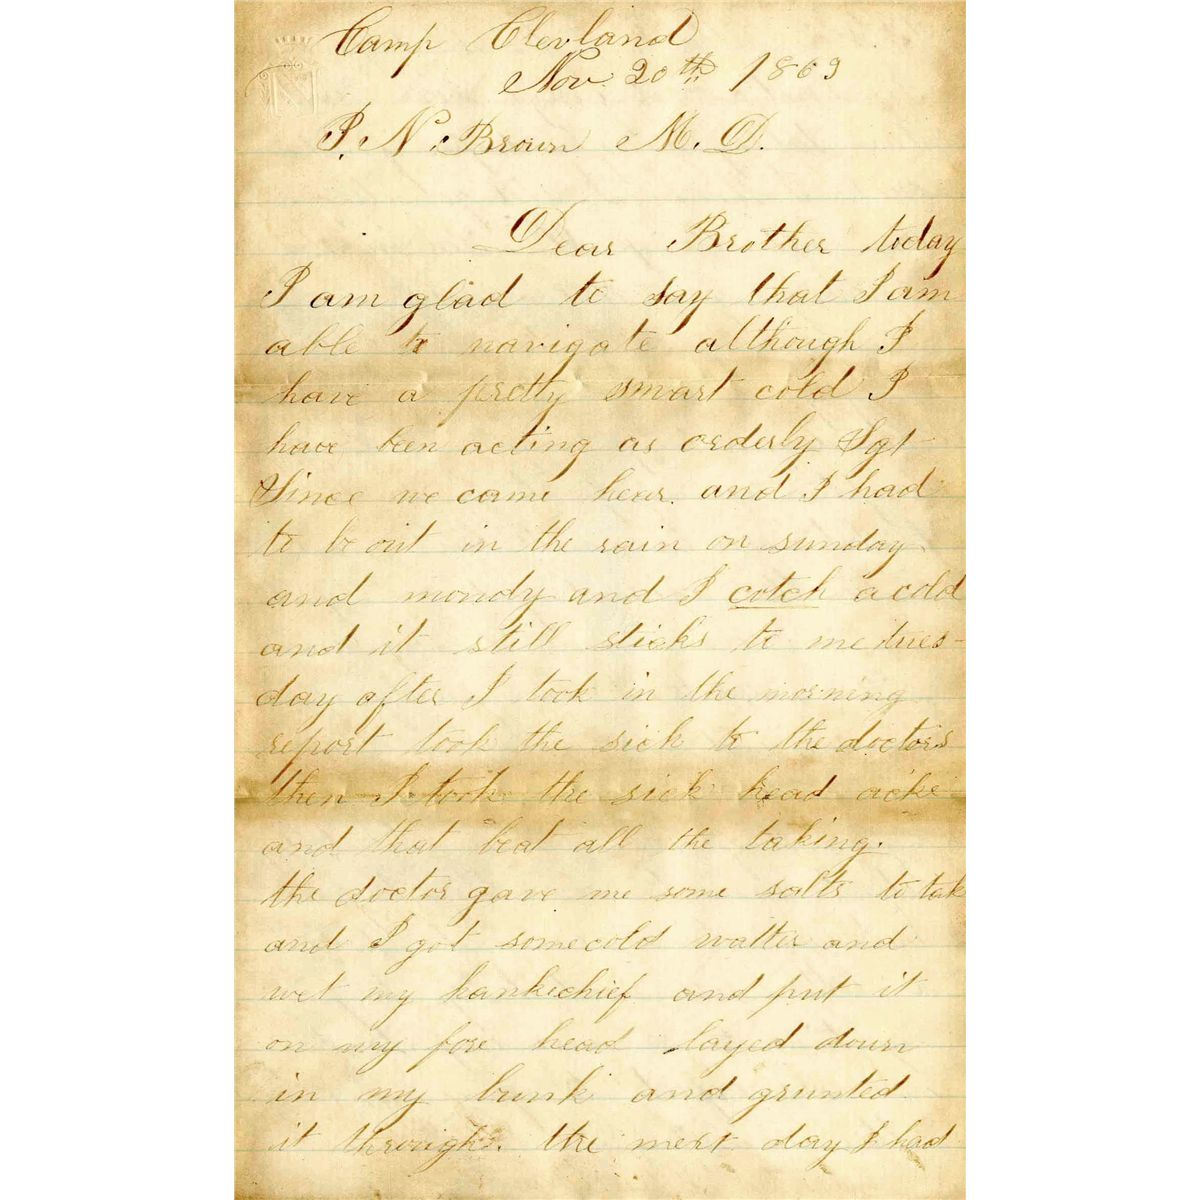 Camp Clevland
Nov. 20th 1863
P. N. Brown M. D.
Dear Brother today
I am glad to say that I am
able to navigate although I
have a pretty smart cold I
have been acting as orderly Sgt
Since we came hear and I had
to be out in the rain on sunday
and mondy and I cotch a cold
and it still sticks to me tues-
day after I took in the morning
report took the sick to the doctors
then I took the sick head acke
and that beat all the taking.
the doctor gave me some salts to tak
and I got some cold watter and
wet my hankechief and put it
on my fore head layed down
in my bunk and grunted
it through. the next day I had